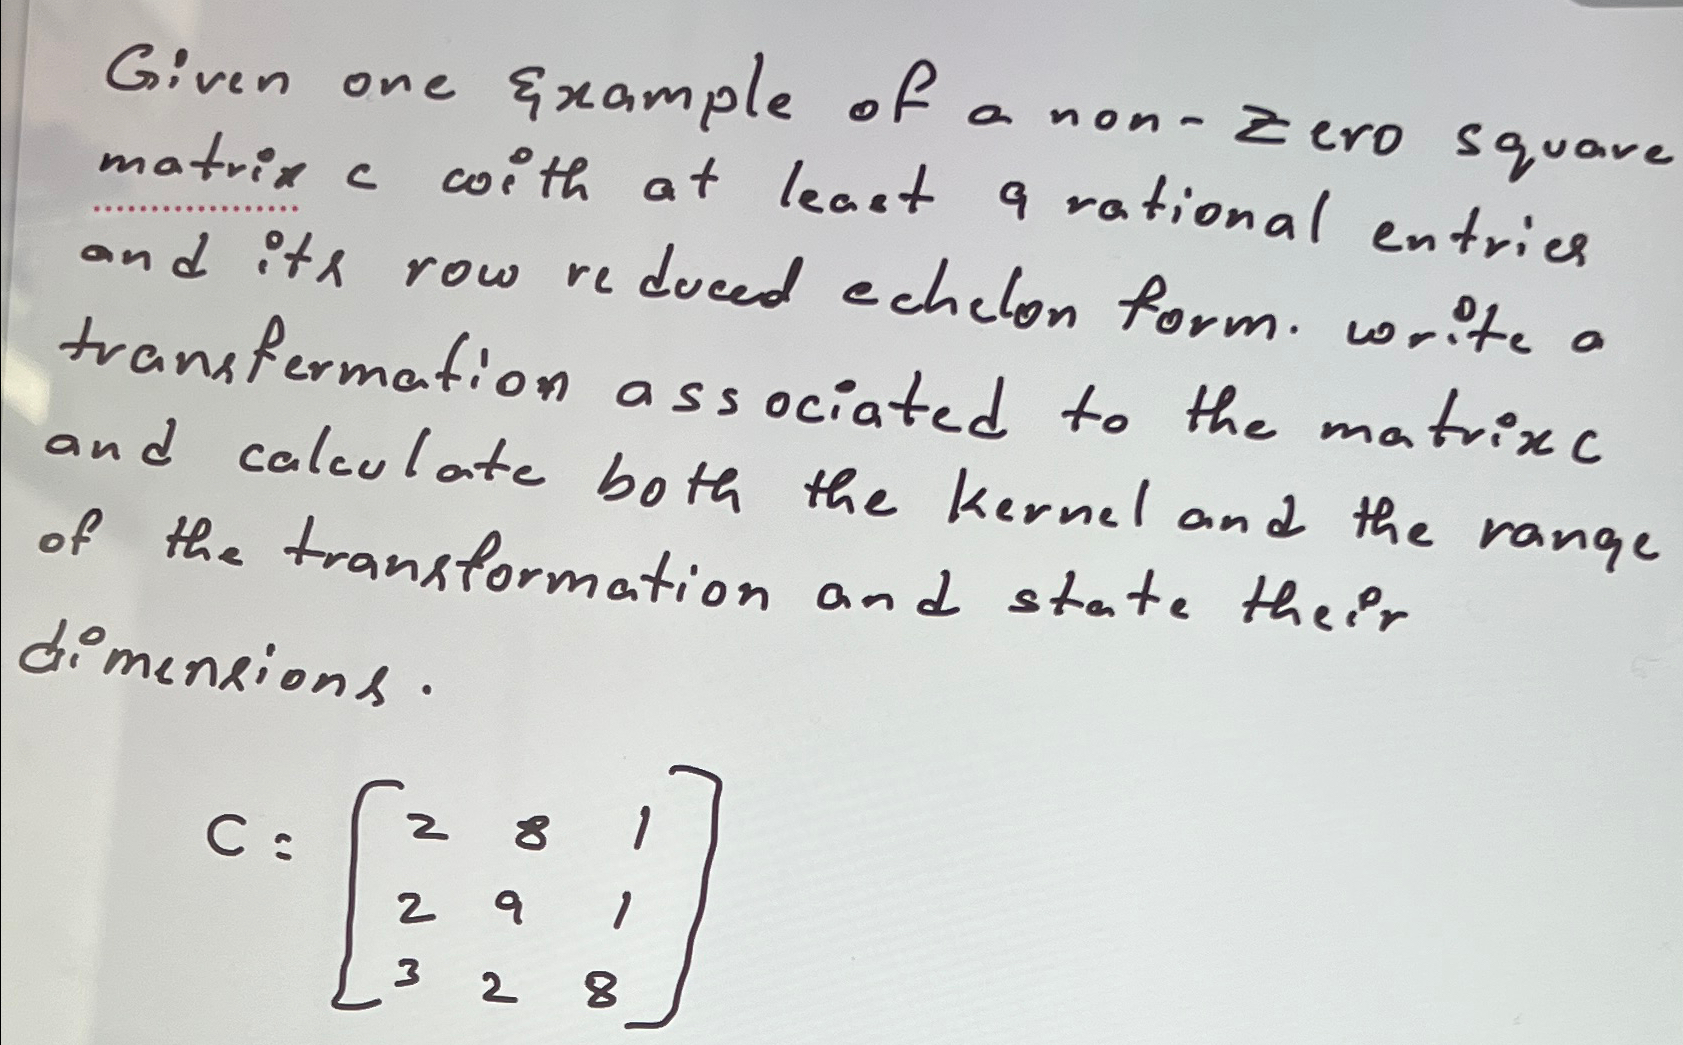 Given one Example of a non-zero square
matrix c with at least 9 rational entries
and its row reduced echelon form. write a
transfermation associated to the matrix c
and calculate both the kernel and the range
of the transformation and state their
dimensions.
C = [ 2 8 1
2 9 1
3 2 8 ]